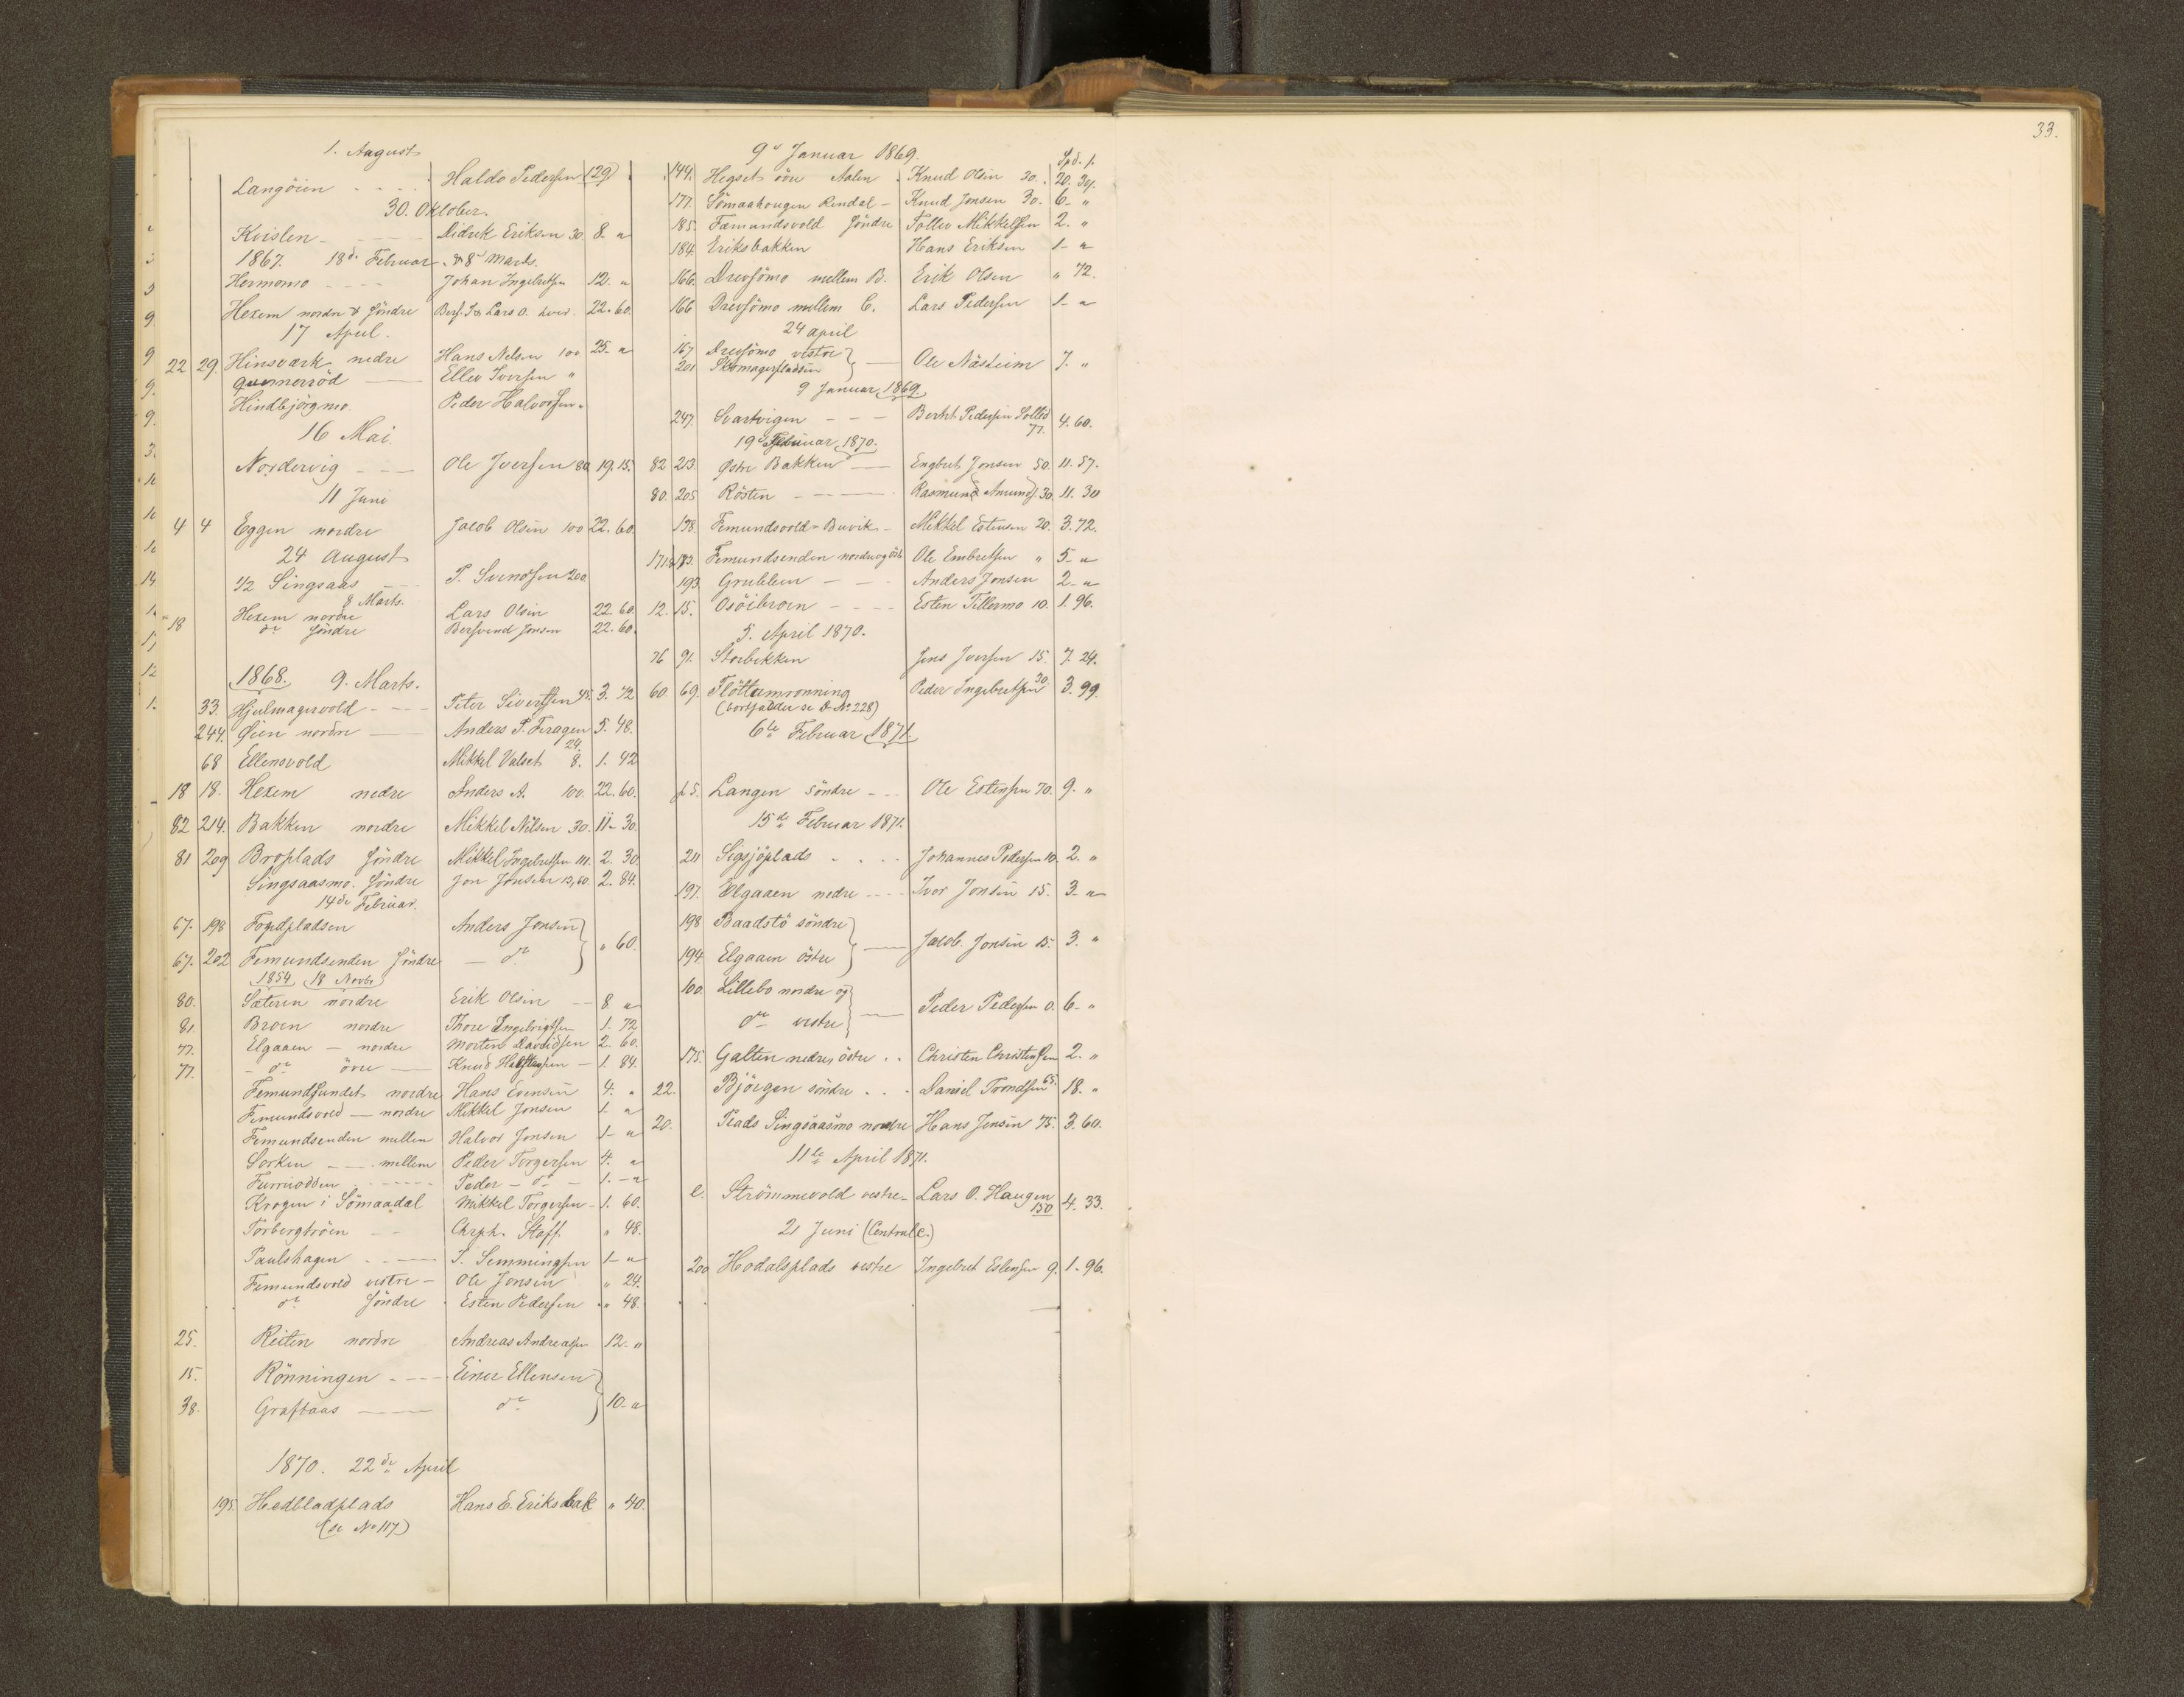 1. August
Langöien - - - - Haldo Pedersen (29)
30. Oktober.
Kvislen - - - Didrik Eriksen 30. 8. "
1867. 18de Februar & 8de Marts.
Hermomo - - - - Johan Ingebretsen 12. "
Hexem nordre & söndre Bersv. J. & Lars O. hver. 22. 60.
17 April.
22 29. Hinsværk nedre Hans Nelsen 100 25. "
Gunnerröd Ellev Iversen "
Hindbjörgmo. Peder Halvorsen.
16 Mai.
Nordervig - - - Ole Iversen 80 19. 15.
11 Juni
4 4 Eggen nordre Jacob Olsen 100 22. 60.
24 August
1/2 Singsaas P. Svendsen 200
8 Marts.
18 Hexem nordre Lars Olsen 22. 60.
do söndre Bersvend Jonsen 22. 60.
1868. 9. Marts.
33. Hjulmagervold - - - Peter Sivertsen 45. 3. 72
244. Øien nordre Anders P. Feragen 5. 48.
24.
68 Ellensvold Mikkel Valset 8. 1. 42
18 18. Hexem nedre Anders A. 100. 22. 60.
82 214. Bakken nordre Mikkel Nilsen 30. 11. 30.
81 209 Broplads söndre Mikkel Ingebretsen 2. 30
Singsaasmo. söndre Jon Jonsen 15,60. 2. 84.
14de Februar.
67. 198 Fogdpladsen Anders Jonsen
67. 202 Femundsenden söndre - do } " 60.
1854 18 Novbr
80. Sæteren nordre Erik Olsen - - 8. "
81. Broen nordre Thore Engebrigtsen 1. 72
77. Elgaaen - nordre Morten Davidsen 2. 60.
77. - do övre - Knud Halfstensen - 1. 84.
Femundsundet nordre Hans Evensen 4. "
Femundsvold - nordre Mikkel Jonsen 1. "
Femundsenden mellen Halvor Jonsen 1- "
Sorken - - - mellem Peder Torgersen 4. "
Furruodden - - - - - Peder - do - 1. - "
Krogen i Sömaadal Mikkel Torgersen - 1. 60.
Torbergtröen - - Chrph. Staff. " 48.
Paulshagen - - - P. Semmingsen 1- "
Femundsvold vestre - Ole Jonsen " 24.
do söndre Esten Pedersen " 48.
25. Reiten nordre Andreas Andreasen 12- "
15. Rönningen - - - Einer Ellensen
38. Graftaas - do } 10- "
1870. 22de April
195. Hedbladplads Hans E. Eriksbak " 40.
(se No 117)
9de Januar 1869. Spd. 1.
144. Hegset övre Aalen Knud Olsen 30. 20. 34.
177. Sömaahougen Rendal - Knud Jonsen 30. 6- "
185. Fæmundsvold söndre Tollev Mikkelsen 2. "
184. Eriksbakken Hans Eriksen 1- "
166. Drevsömo mellem B. Erik Olsen " 72.
166 Drevsömo mellem C. Lars Pedersen 1- "
24 april
167 Drevsömo vestre
201 Skomagerpladsen } - Ole Näsheim 7. "
9 Januar 1869.
247. Svartvigen - - - Berht. Pedersen Sollid 77. 4. 60.
19de Februar 1870.
82 213. Östre Bakken Engbret Jonsen 50. 11. 57.
80. 205 Rösten - - - Rasmund Amunds. 30. 11. 30
198. Femundsvold-Buvik - Mikkel Estensen 20. 3. 72.
171 183. Femundsenden nordre og östre Ole Embretsen " 5- "
193. Grubben - - - Anders Jonsen 2- "
12. 15. Osöibroen - - - - Esten Tillermo 10. 1. 96.
5. April 1870.
76 91. Storbekken Jens Iversen 15. 7. 24.
60. 69. Flöttumrönning Peder Ingebretsen 30. 3. 99.
(bortfalder se No 228)
6te Februar 1871.
5. Langen söndre - - Ole Estensen 70. 9. "
15de Februar 1871.
211 Sigsjöplads - - - Johannes Pedersen 10. 2. "
197. Elgaaen nedre - - - Iver Jonsen 15. 3- "
198 Baadstö söndre
194 Elgaaen östre } - Jacob Jonsen 15. 3. "
100. Lillebo nordre og
do vestre } - Peder Pedersen 0. 6- "
175. Galten nedre, östre . . Christen Christensen 2. "
22. Björgen söndre . . . Daniel Trondsen 65. 18. "
20. Plads Singsaasmo nordre Hans Jensen 75. 3. 60.
11te April 1871.
Strömmevold vestre - Lars O. Haugen 150 4. 33.
21 Juni (Centralc.)
200 Hodalsplads vestre Ingebret Eslensen 9. 1. 96.
33.